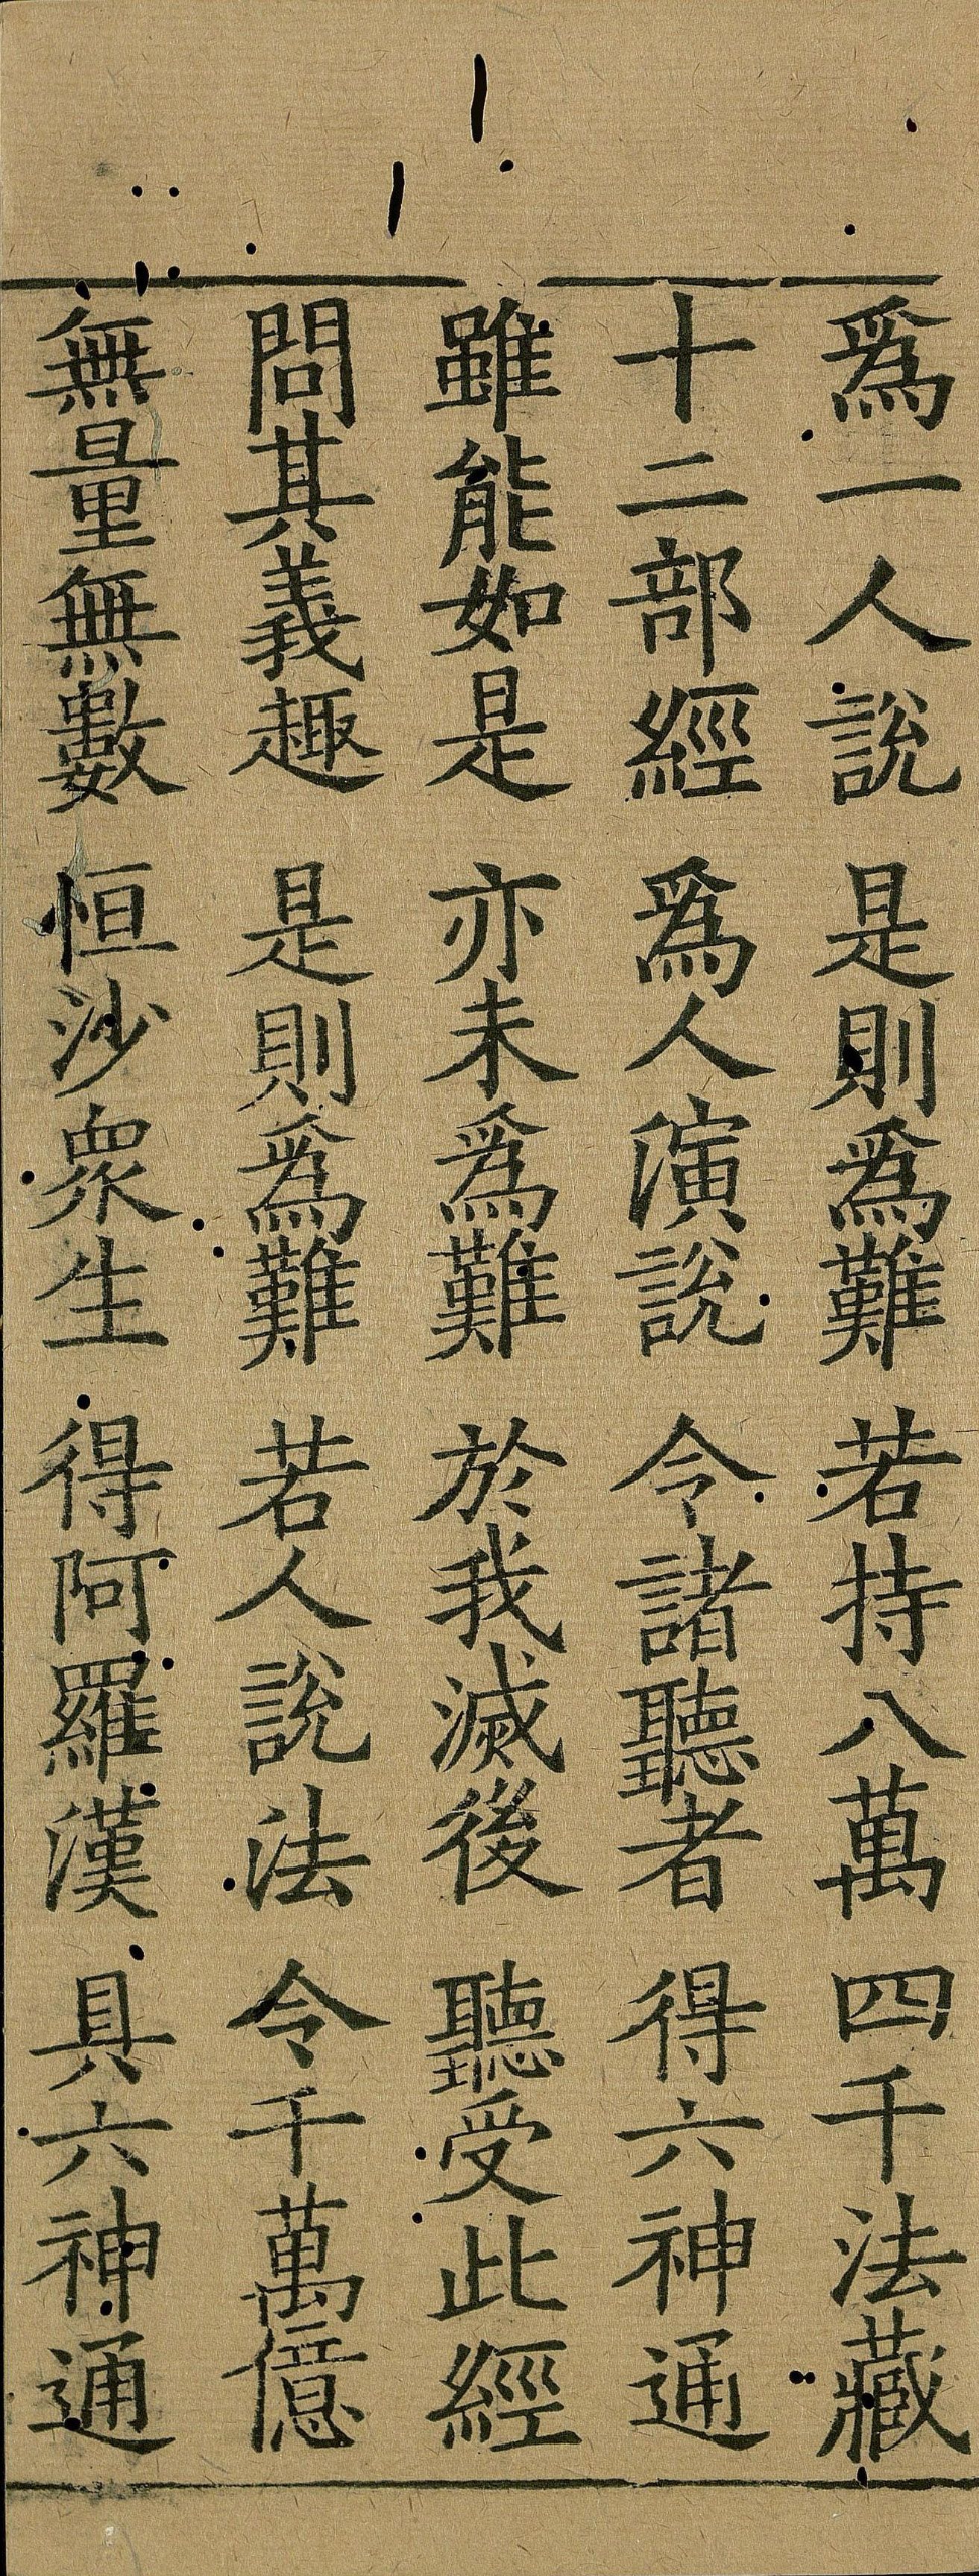 爲一人說　是則爲難　若持八萬　四千法藏
十二部經　爲人演說　令諸聽者　得六神通
雖能如是　亦未爲難　於我滅後　聽受此經
問其義趣　是則爲難　若人說法　令千萬億
無量無數　恒沙衆生　得阿羅漢　具六神通